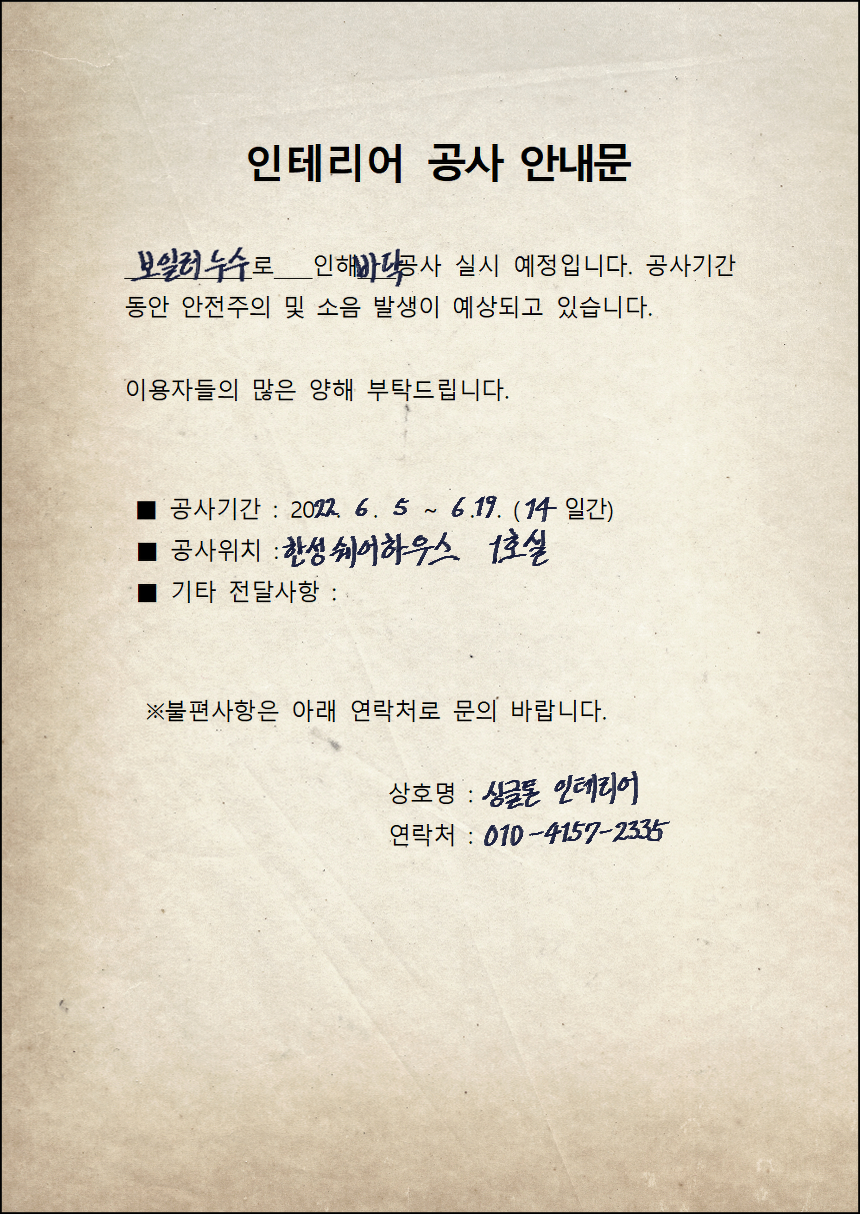 인테리어 공사 안내문
보일러 누수로___인해 바닥 공사 실시 예정입니다. 공사기간
동안 안전주의 및 소음 발생이 예상되고 있습니다.
이용자들의 많은 양해 부탁드립니다.
■ 공사기간 : 2022. 6. 5 ~ 6.19. (14 일간)
■ 공사위치 : 한성 쉐어하우스 1호실
■ 기타 전달사항 :
※불편사항은 아래 연락처로 문의 바랍니다.
상호명 : 싱글톤 인테리어
연락처 : 010-4157-2335